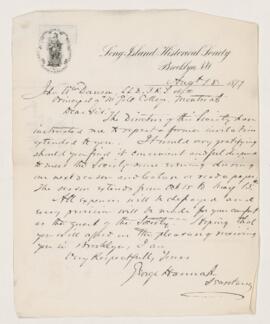 Long Island Historical Society
Brooklyn, NY
Augt 18 1879
John Wm Dawson, LLD, F.R.S
Principal of McGill College, Montreal
Dear Sir:
The Directors of the Society have
instructed me to repeat a former invitation
extended to you. It would very gratifying
should you find it convenient and feel disposed to
meet the Society some evening during
our next season and lecture or read a paper.
The season extends from Oct 15 to May 15th.
All expenses will be defrayed and
every provision will be made for your comfort
as the guest of the Society. Hoping that
you will afford us the pleasure of receiving
you in Brooklyn, I am
Very Respectfully, Yours
George Hannah
Secretary